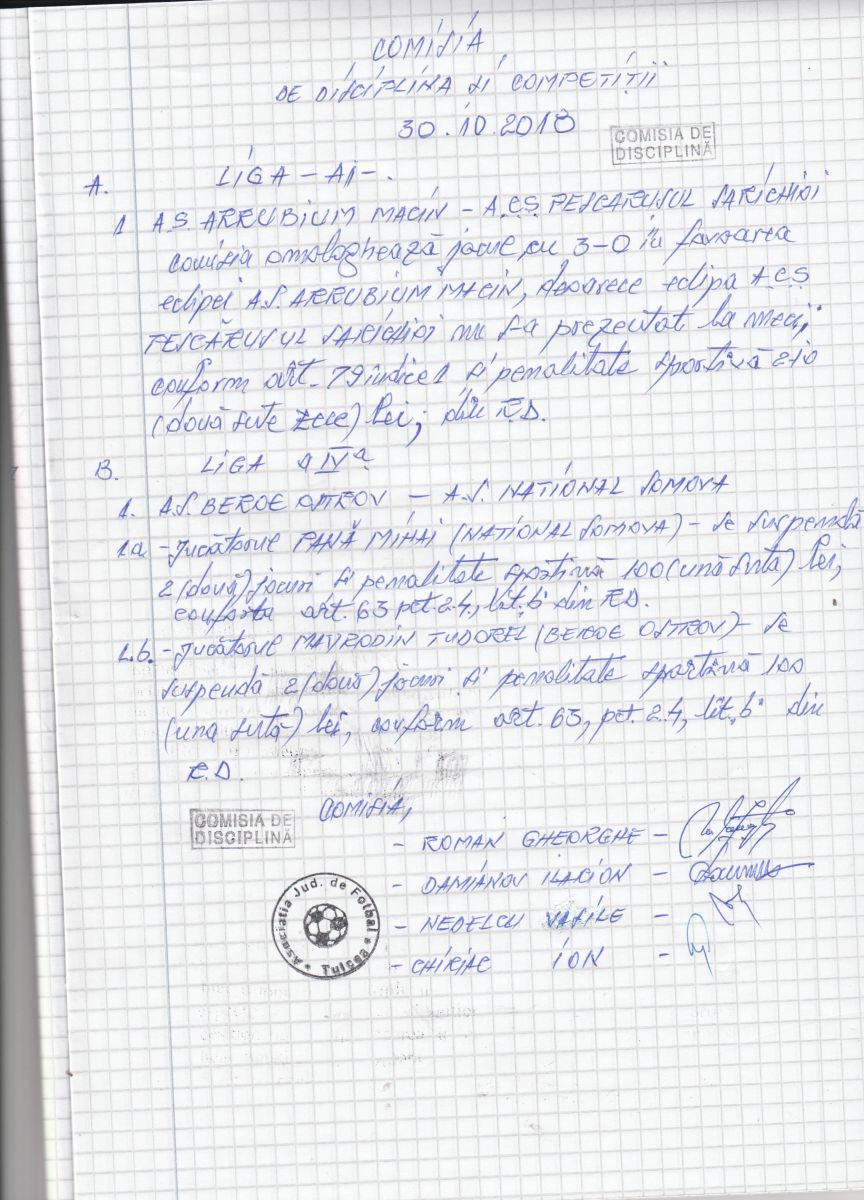 COMISIA
DE DISCIPLINA SI COMPETIȚII
30.10.2018
COMISIA DE
DISCIPLINĂ
A. LIGA - A1-.
1 A.S. ARRUBIUM MACIN - A.C.S. PESCARUSUL SARICHIOI
comisia omologhează jocul cu 3-0 în favoarea
echipei A.S. ARRUBIUM MACIN, deoarece echipa A.C.S
PESCĂRUSUL SARICHIOI nu s-a prezentat la meci,
conform art. 79 indice 1 si penalitate sportivă 210
(două sute zece) lei; din R.D.
B. LIGA a IV a
1. A.S. BEROE OSTROV - A.S. NATIONAL SOMOVA
1a -Jucătorul PANĂ MIHAI (NATIONAL SOMOVA) - se suspendă
2 (două) jocuri si penalitate sportivă 100 (una sută) lei,
conform art. 63 pct 2.4, lit. b din R.D.
1.b. -Jucătorul MAVRODIN TUDOREL (BEROE OSTROV) - se
suspendă 2 (două) jocuri si penalitate sportivă 100
(una sută) lei, conform art. 63, pct. 2.4, lit. b din
R.D.
COMISIA,
COMISIA DE
DISCIPLINĂ
- ROMAN GHEORGHE -
- DAMIANOV ILARION -
- NEDELCU VASILE -
- CHIRIAC ION -
Asociatia Jud. de Fotbal
* Tulcea *